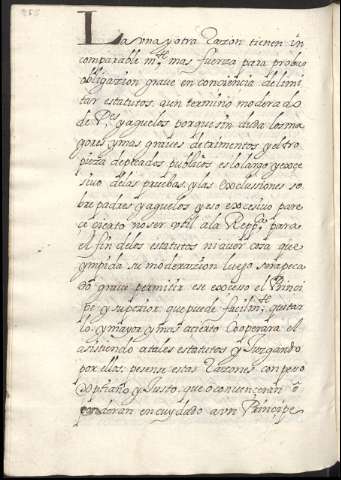 La una y otra Razon tienen in
comparable m.te mas fuerza para probar
obligazion grave en conciencia de limi
tar estatutos, que en termino moderado
de P.es y aguelos porque sin duda los ma
yores y mas graves detrimentos y el tro
pieza de pecados publicos es lo largo y exce
sivo de las pruebas, y las exclusiones so
bre padres y aguelos y eso excesivo pare
ce cierto no ser util a la Repp.ca para
el fin de los estatutos ni aver cosa que
ympida su moderazion luego sera peca
do grave permitir ese exceso el Princi
pe y superior que puede facilm.te quitar
lo, y mayor y mas cierto Cooperar a el
asistiendo a tales estatutos y Juzgando
por ellos, pesense estas Razones con peso
xptiano, y Justo, que o convenceran o
pondran en cuydado a un Principe